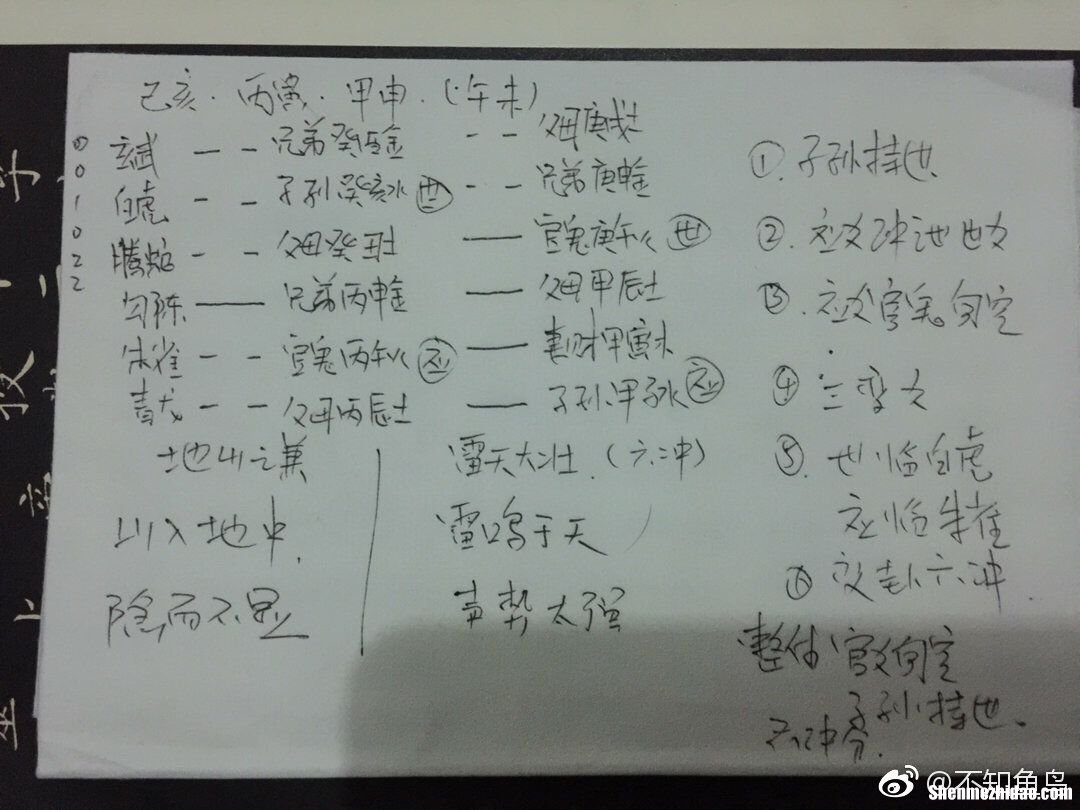 己亥·丙寅·甲申·(午未)
0 玄武 — — 兄弟癸酉金 — — 父母庚戌土
0 白虎 — — 子孙癸亥水 世 — — 兄弟庚申金
1 腾蛇 — — 父母癸丑土 —— 官鬼庚午火 世
0 勾陈 —— 兄弟丙申金 —— 父母甲辰土
2 朱雀 — — 官鬼丙午火 应 —— 妻财甲寅木
2 青龙 — — 父母丙辰土 —— 子孙甲子水 应
地山之谦
山入地中.
隐而不显
雷天大壮.(六冲)
雷鸣于天
声势太强
① 子孙持世
②. 应爻冲世爻
③. 应爻官鬼旬空
④ 三变爻
⑤. 世临白虎
应临朱雀
⑥ 变卦六冲
整体官爻旬空
子孙持世.
六冲
不知鱼鸟
Shenmezhidao.com